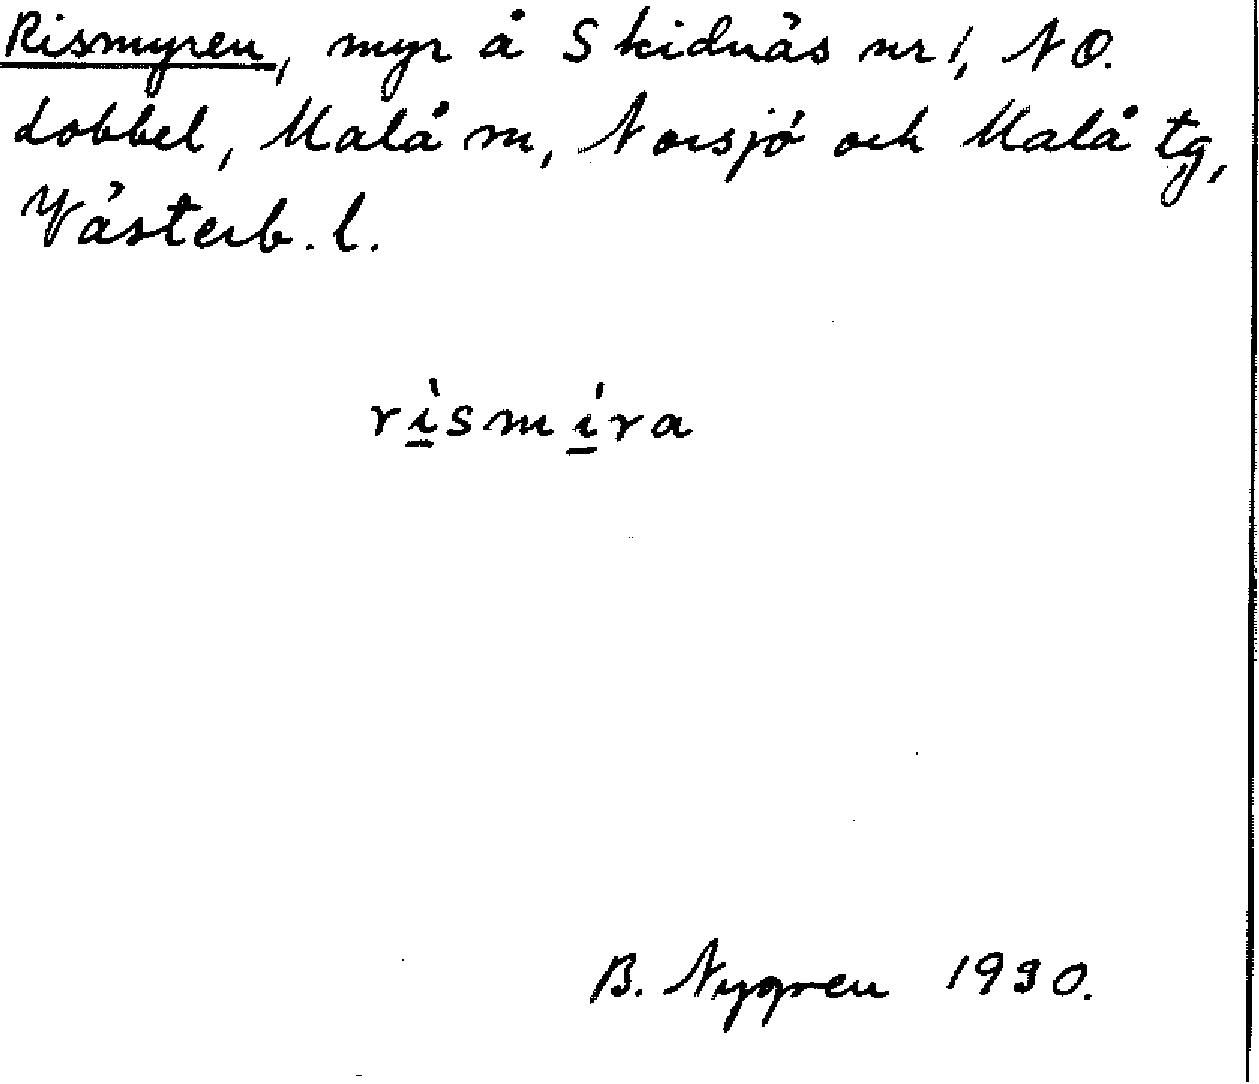 Rismyren, myr å Skidnäs nr 1, NO.
dobbel, Malå sn, Norsjö och Malå tg,
Västerb. l.
rìsmíra
B. Nygren 1930.